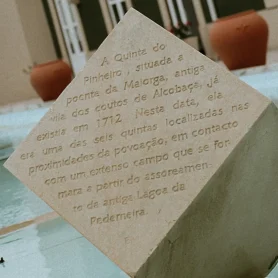 A Quinta do
Pinheiro, situada a
poente da Maiorga, antiga
vila dos coutos de Alcobaça, já
existia em 1712. Neste data, ela
era uma das seis quintas localizadas nas
proximidades da povoação, em contacto
com um extenso campo que se for
mara a partir do assoreamen-
to da antiga Lagoa da
Pederneira.